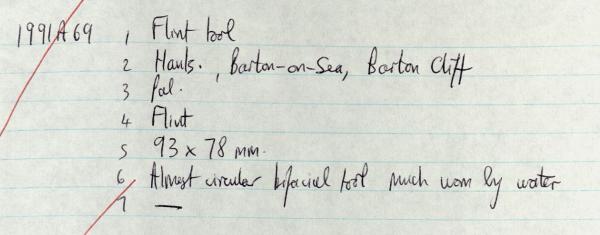 1991A69 1 Flint tool
2 Hants., Barton-on-Sea, Barton Cliff
3 Pal.
4 Flint
5 93 x 78 mm.
6 Almost circular bifacial tool much worn by water
7 —